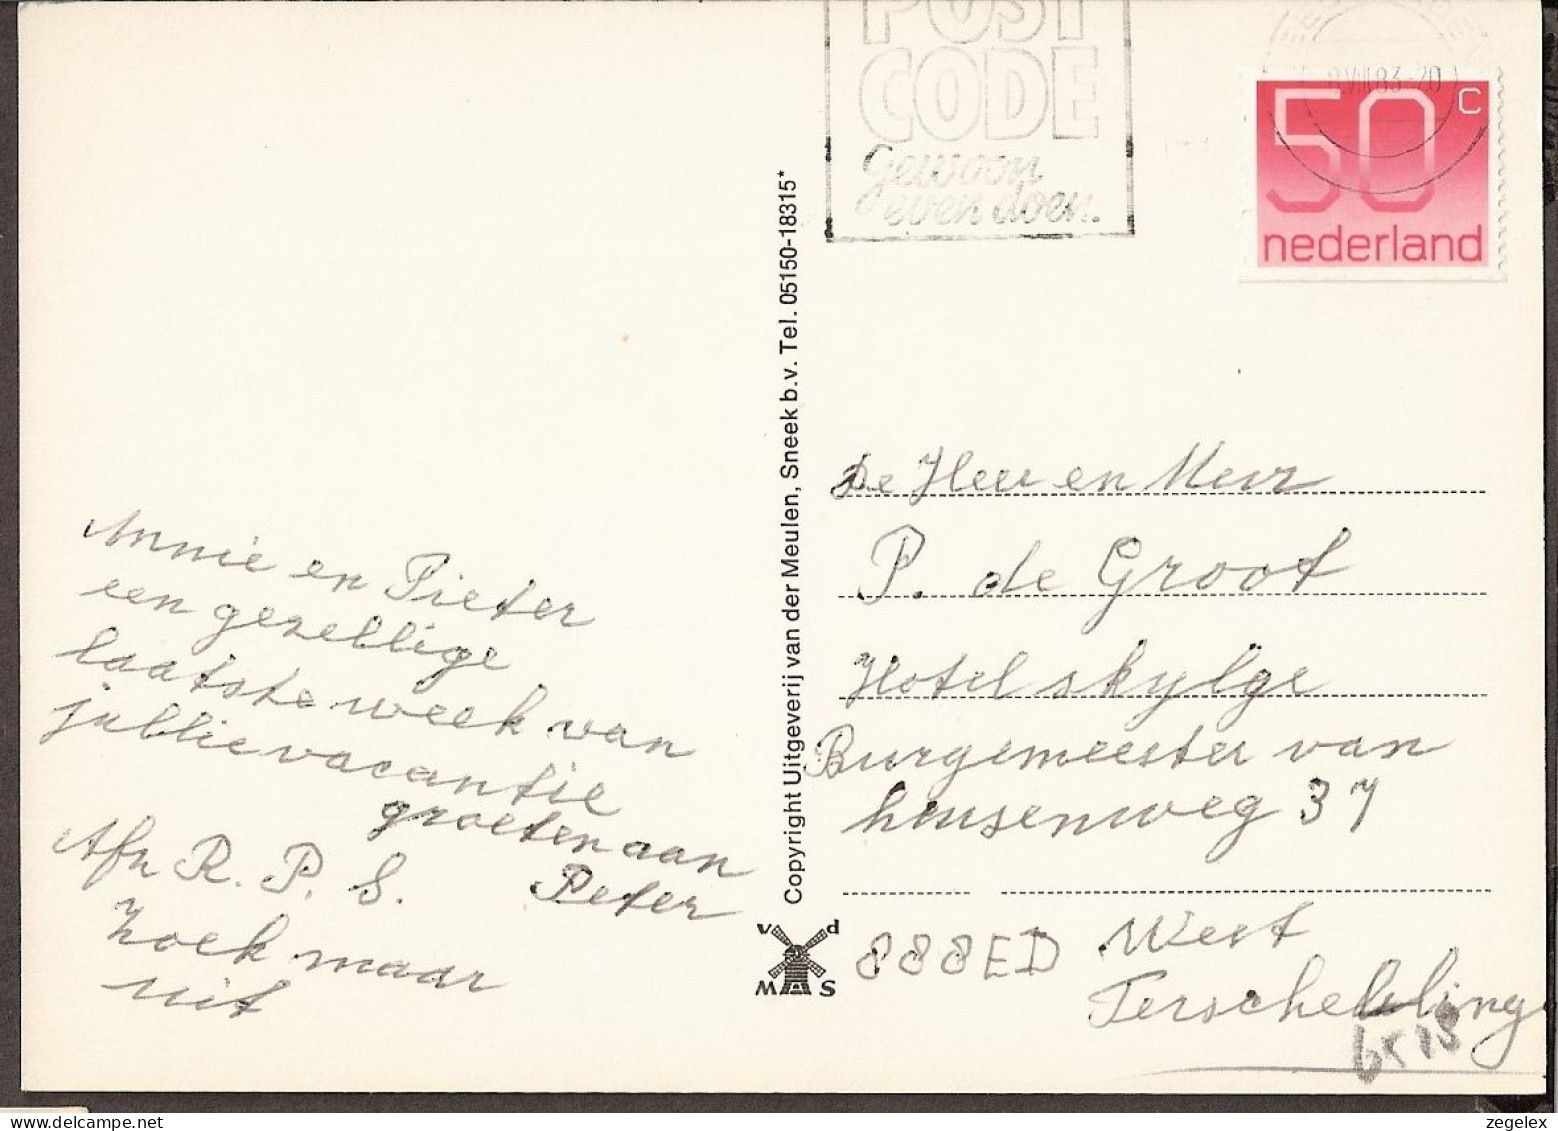 POST
CODE
gewoon
even doen.
8.VIII.83-20
50 c
nederland
Annie en Pieter
een gezellige
laatste week van
jullie vacantie
groeten aan
Peter
Afz R. P. S.
Zoek maar
uit
Copyright Uitgeverij van der Meulen, Sneek b.v. Tel. 05150-18315*
v d
M S
De Heer en Mevr
P. de Groot
Hotel skylge
Burgemeester van
heusenweg 37
888ED West
Terschelling
zegelex